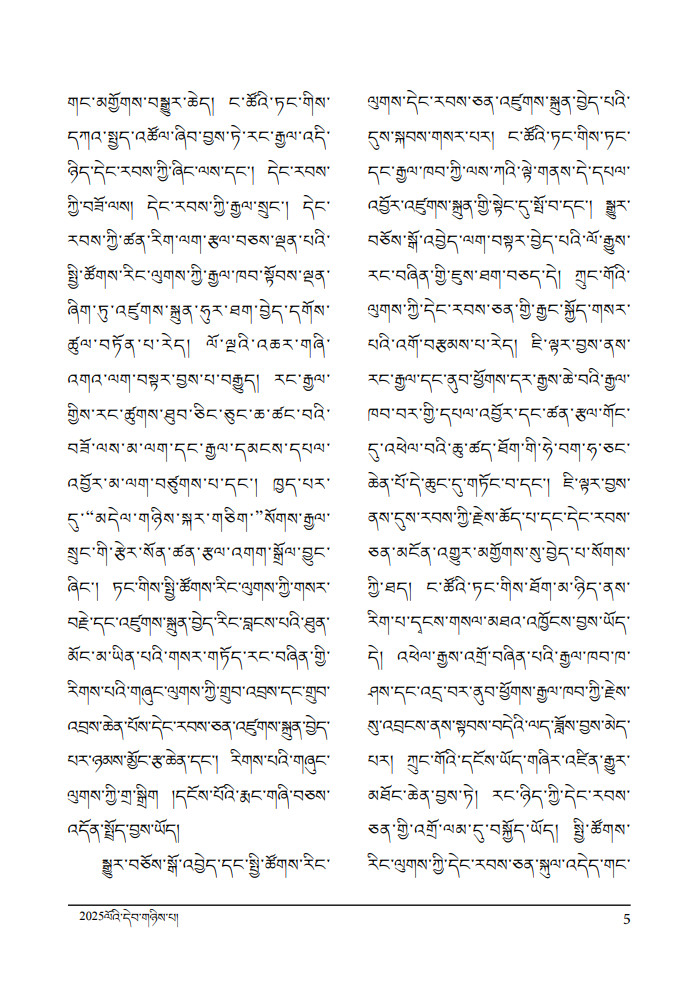 གང་མགྱོགས་བསྒྱུར་ཆེད། ང་ཚོའི་ཏང་གིས་
དཀའ་སྤྱད་འཚོལ་ཞིབ་བྱས་ཏེ་རང་རྒྱལ་འདི་
ཉིད་དེང་རབས་ཀྱི་ཞིང་ལས་དང་། དེང་རབས་
ཀྱི་བཟོ་ལས། དེང་རབས་ཀྱི་རྒྱལ་སྲུང་། དེང་
རབས་ཀྱི་ཚན་རིག་ལག་རྩལ་བཅས་ལྡན་པའི་
སྤྱི་ཚོགས་རིང་ལུགས་ཀྱི་རྒྱལ་ཁབ་སྟོབས་ལྡན་
ཞིག་ཏུ་འཛུགས་སྐྲུན་ཧུར་ཐག་བྱེད་དགོས་
ཚུལ་བཏོན་པ་རེད། ལོ་ལྔའི་འཆར་གཞི་
འགའ་ལག་བསྟར་བྱས་པ་བརྒྱུད། རང་རྒྱལ་
གྱིས་རང་ཚུགས་ཐུབ་ཅིང་ཅུང་ཆ་ཚང་བའི་
བཟོ་ལས་མ་ལག་དང་རྒྱལ་དམངས་དཔལ་
འབྱོར་མ་ལག་བཙུགས་པ་དང་། ཁྱད་པར་
དུ་“མདེལ་གཉིས་སྐར་གཅིག་”སོགས་རྒྱལ་
སྲུང་གི་རྩེར་སོན་ཚན་རྩལ་འགག་སྒྲོལ་བྱུང་
ཞིང་། ཏང་གིས་སྤྱི་ཚོགས་རིང་ལུགས་ཀྱི་གསར་
བརྗེ་དང་འཛུགས་སྐྲུན་བྱེད་རིང་བླངས་པའི་ཐུན་
མོང་མ་ཡིན་པའི་གསར་གཏོད་རང་བཞིན་གྱི་
རིགས་པའི་གཞུང་ལུགས་ཀྱི་གྲུབ་འབྲས་དང་གྲུབ་
འབྲས་ཆེན་པོས་དེང་རབས་ཅན་འཛུགས་སྐྲུན་བྱེད་
པར་ཉམས་མྱོང་རྩ་ཆེན་དང་། རིགས་པའི་གཞུང་
ལུགས་ཀྱི་གྲ་སྒྲིག །དངོས་པོའི་རྨང་གཞི་བཅས་
འདོན་སྤྲོད་བྱས་ཡོད།
སྒྱུར་བཅོས་སྒོ་འབྱེད་དང་སྤྱི་ཚོགས་རིང་
ལུགས་དེང་རབས་ཅན་འཛུགས་སྐྲུན་བྱེད་པའི་
དུས་སྐབས་གསར་པར། ང་ཚོའི་ཏང་གིས་ཏང་
དང་རྒྱལ་ཁབ་ཀྱི་ལས་ཀའི་ལྟེ་གནས་དེ་དཔལ་
འབྱོར་འཛུགས་སྐྲུན་གྱི་སྟེང་དུ་སྤོ་བ་དང་། སྒྱུར་
བཅོས་སྒོ་འབྱེད་ལག་བསྟར་བྱེད་པའི་ལོ་རྒྱུས་
རང་བཞིན་གྱི་ཇུས་ཐག་བཅད་དེ། ཀྲུང་གོའི་
ལུགས་ཀྱི་དེང་རབས་ཅན་གྱི་རྒྱང་སྐྱོད་གསར་
པའི་འགོ་བརྩམས་པ་རེད། ཇི་ལྟར་བྱས་ནས་
རང་རྒྱལ་དང་ནུབ་ཕྱོགས་དར་རྒྱས་ཆེ་བའི་རྒྱལ་
ཁབ་བར་གྱི་དཔལ་འབྱོར་དང་ཚན་རྩལ་གོང་
དུ་འཕེལ་བའི་ཆུ་ཚད་ཐོག་གི་ཧེ་བག་ཧ་ཅང་
ཆེན་པོ་དེ་ཆུང་དུ་གཏོང་བ་དང་། ཇི་ལྟར་བྱས་
ནས་དུས་རབས་ཀྱི་རྗེས་ཚོད་པ་དང་དེང་རབས་
ཅན་མངོན་འགྱུར་མགྱོགས་སུ་བྱེད་པ་སོགས་
ཀྱི་ཐད། ང་ཚོའི་ཏང་གིས་ཐོག་མ་ཉིད་ནས་
རིག་པ་དྭངས་གསལ་མཐའ་འཁྱོངས་བྱས་ཡོད་
དེ། འཕེལ་རྒྱས་འགྲོ་བཞིན་པའི་རྒྱལ་ཁབ་ཁ་
ཤས་དང་འདྲ་བར་ནུབ་ཕྱོགས་རྒྱལ་ཁབ་ཀྱི་རྗེས་
སུ་འབྲངས་ནས་སྟབས་བདེའི་ལད་ཟློས་བྱས་མེད་
པར། ཀྲུང་གོའི་དངོས་ཡོད་གཞིར་འཛིན་རྒྱུར་
མཐོང་ཆེན་བྱས་ཏེ། རང་ཉིད་ཀྱི་དེང་རབས་
ཅན་གྱི་འགྲོ་ལམ་དུ་བསྐྱོད་ཡོད། སྤྱི་ཚོགས་
རིང་ལུགས་ཀྱི་དེང་རབས་ཅན་སྐུལ་འདེད་གང་
2025ལོའི་དེབ་གཉིས་པ།
5